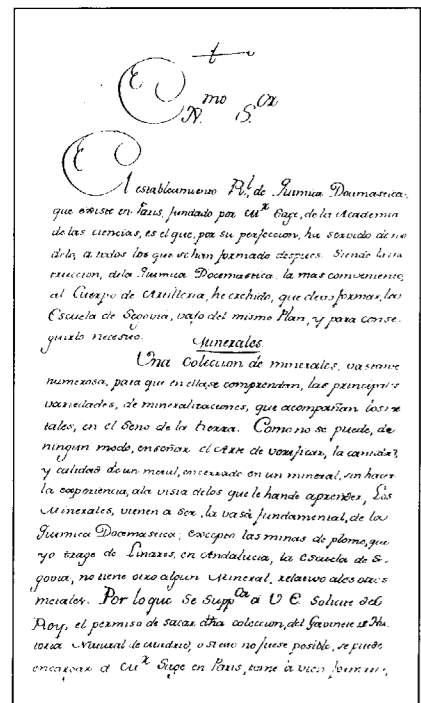 Exmo
N. Sor
El establecimiento Rl. de Quimica Docimastica.
que existe en Paris, fundado por Mr Sage, de la Academia
de las ciencias, es el que, por su perfeccion, ha servido de mo
delo, a todos los que se han formado despues. Siendo la ins
truccion, dela Quimica Docemastica. la mas conveniente,
al Cuerpo de Artilleria, he crehido, que devo formar, la
Escuela de Segovia, vajo del mismo Plan, y para conse
guirlo necesito.
Minerales.
Una Coleccion de minerales, vastante
numerosa, para que en ella se comprendan, las principales
variedades, de mineralizaciones, que acompañan los me
tales, en el Seno de la tierra. Como no se puede, de
ningun modo, enseñar el Arte de verificar, la cantidad,
y calidad de un metal, encerrado en un mineral, sin hacer
la experiencia, ala vista delos que le han de aprender, Los
Minerales, vienen a ser, la vasa fundamental, de la
Quimica Docemastica; excepto las minas de plomo, que
yo trage de Linares, en Andalucia, la Escuela de Se-
govia, no tiene otro algun Mineral, relativo alos otros
metales. Por lo que Se Suppca a V E. Solicite del
Rey, el permiso de sacar dha coleccion, del Gavinete de His
toria Natural de Madrid, o si esto no fuese posible, se puede
encargar a Mr Sage en Paris, tome a vien formar,